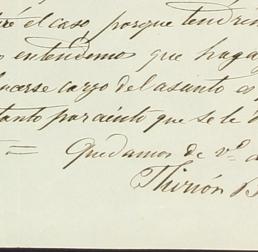 ré el caso, porque tendrem
entendemos que haga
hacerse cargo del asunto es
tanto por ciento que se le
= Quedamos de vd. a
Thirión B